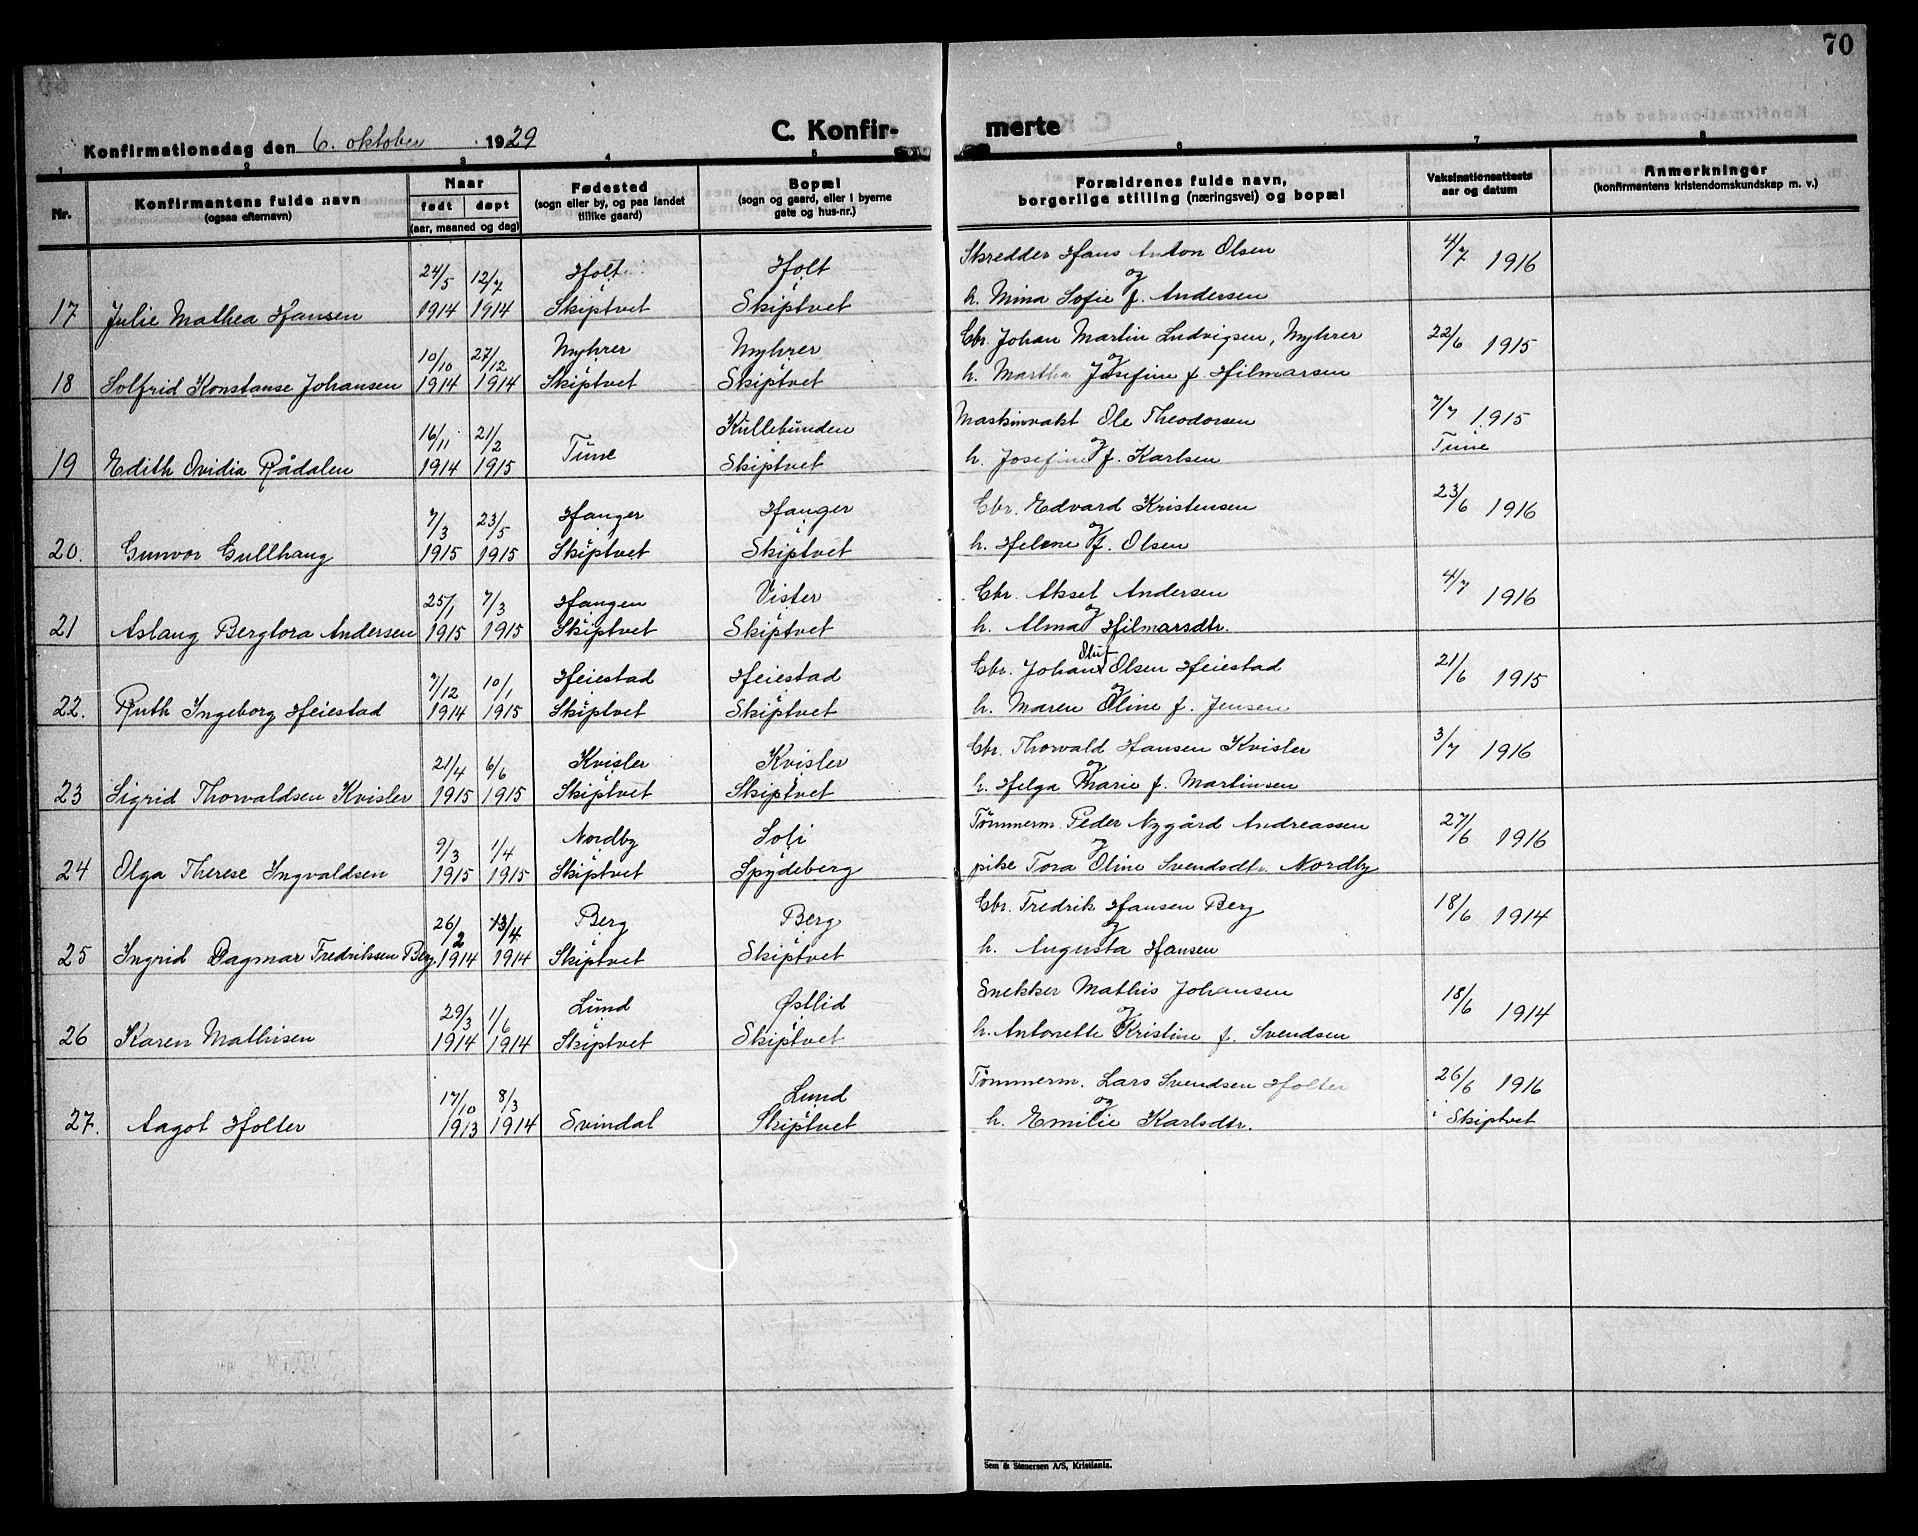 70
Konfirmationsdag den 6. oktober 1929
C. Konfir-
merte
1 2 3 4 5 6 7 8
Nr.
Konfirmantens fulde navn
(ogsaa efternavn)
Naar
født døpt
(aar, maaned og dag)
Fødested
(sogn eller by, og paa landet
tillike gaard)
Bopæl
(sogn og gaard, eller i byerne
gate og hus-nr.)
Forældrenes fulde navn,
borgerlige stilling (næringsvei) og bopæl
Vaksinationsattests
aar og datum
Anmerkninger
(konfirmantens kristendomskundskap m. v.)
24/5 12/7 Holt Holt Skredder Hans Anton Olsen 4/7 1916
og
17 Julie Mathea Hansen 1914 1914 Skiptvet Skiptvet h. Mina Sofie f. Andersen
10/10 27/12 Myhrer Myhrer Gbr. Johan Martin Ludvigsen, Myhrer 22/6 1915
og
18 Solfrid Konstanse Johansen 1914 1914 Skiptvet Skiptvet h. Martha Josefine f. Hilmarsen
16/11 21/2 Tune Kullebunden Maskinvakt Ole Theodorsen 7/7 1915
og Tune
19 Edith Ovidia Rådalen 1914 1915 Skiptvet h. Josefine f. Karlsen
7/3 23/5 Hanger Hanger Gbr. Edvard Kristensen 23/6 1916
og
20. Gunvor Gullhaug 1915 1915 Skiptvet Skiptvet h. Helene f. Olsen
25/1 7/3 Haugen Vister Gbr. Aksel Andersen 4/7 1916
og
21 Aslaug Berglora Andersen 1915 1915 Skiptvet Skiptvet h. Alma Hilmarsdtr.
Oluf
7/12 10/1 Heiestad Heiestad Gbr. Johan Olsen Heiestad 21/6 1915
og
22. Ruth Ingeborg Heiestad 1914 1915 Skiptvet Skiptvet h. Maren Oline f. Jensen
21/4 6/6 Kvisler Kvisler Gbr. Thorvald Hansen Kvisler 3/7 1916
og
23 Sigrid Thorvaldsen Kvisler 1915 1915 Skiptvet Skiptvet h. Helga Marie f. Martinsen
9/3 1/4 Nordby Soli Tømmerm. Peder Nygård Andreassen 27/6 1916
og
24 Olga Therese Ingvaldsen 1915 1915 Skiptvet Spydeberg pike Tora Oline Svendsdtr. Nordby
26/2 13/4 Berg Berg Gbr. Fredrik Hansen Berg 18/6 1914
og
25 Ingrid Dagmar Fredriksen Berg. 1914 1914 Skiptvet Skiptvet h. Augusta Hansen
29/3 1/6 Lund Østlid Snekker Mathis Johansen 18/6 1914
og
26 Karen Mathisen 1914 1914 Skiptvet Skiptvet h. Antonette Kristine f. Svendsen
17/10 8/3 Lund Tømmerm. Lars Svendsen Holter 26/6 1916
og
27. Aagot Holter 1913 1914 Svindal Skiptvet h. Emilie Karlsdtr. i Skiptvet
Sem & Stenersen A/S, Kristiania.